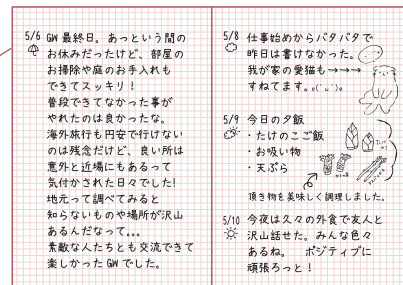 5/6 GW最終日。あっという間の
お休みだったけど、部屋の
お掃除や庭のお手入れも
できてスッキリ！
普段できてなかった事が
やれたのは良かったな。
海外旅行も円安で行けない
のは残念だけど、良い所は
意外と近場にもあるって
気付かされた日々でした!
地元って調べてみると
知らないものや場所が沢山
あるんだなって。。。
素敵な人たちとも交流できて
楽しかったGWでした。
5/8 仕事始めからバタバタで
昨日は書けなかった。
我が家の愛猫も→→→
すねてます。
5/9 今日の夕飯
・たけのこご飯
・お吸い物
・天ぷら
頂き物を美味しく調理しました。
5/10 今夜は久々の外食で友人と
沢山話せた。みんな色々
あるね。 ポジティブに
頑張ろっと！